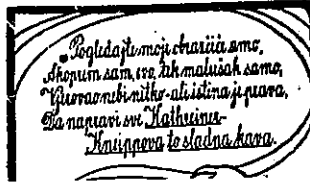 „Pogledajte moji obraščići amo,
A kopum sam, evo, tek malušak samo,
Vjerovao nebi nitko - ali istina je prava,
Da napravi sve Kathreiner-
Kneippova to sladna kava.